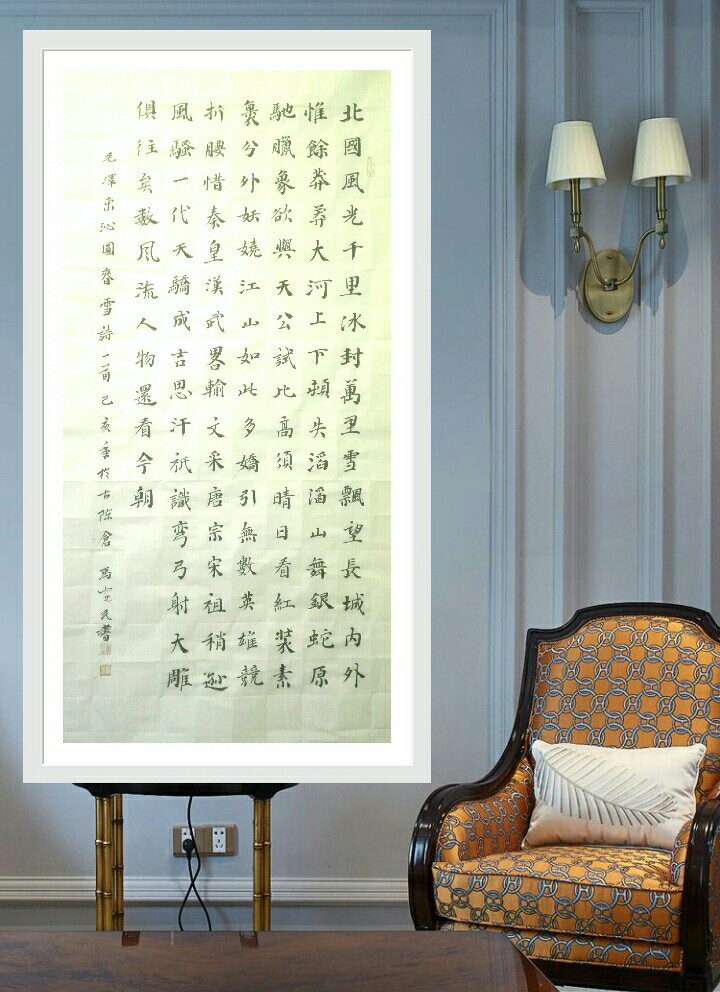 北國風光千里冰封萬里雪飄望長城内外
惟餘莽莽大河上下頓失滔滔山舞銀蛇原
馳臘象欲與天公試比高須晴日看紅裝素
裹兮外妖嬈江山如此多嬌引無數英雄競
折腰惜秦皇漢武畧輸文采唐宗宋祖稍遜
風騷一代天驕成吉思汗祇識彎弓射大雕
俱往矣數風流人物還看今朝
毛澤東沁園春雪詩一首己亥年於古陳倉 馬民書